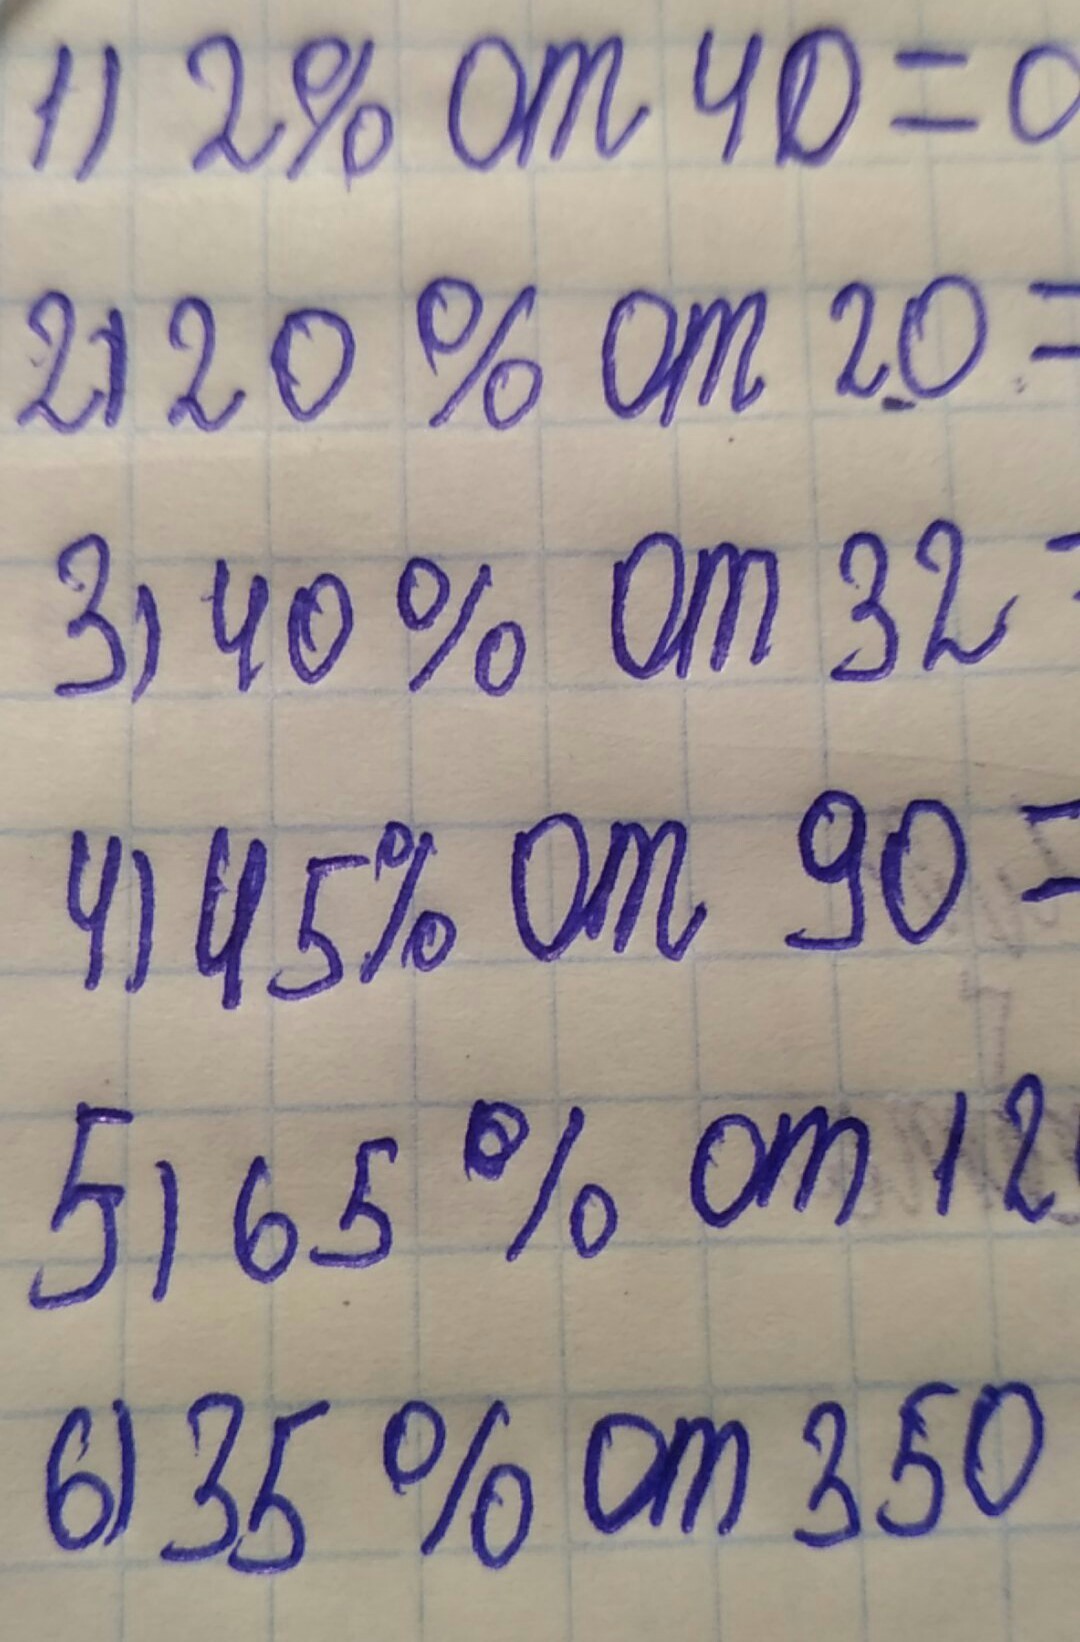 1) 2% от 40 = 0
2) 20 % от 20 =
3) 40 % от 32 =
4) 45% от 90 =
5) 65 % от 12
6) 35 % от 350